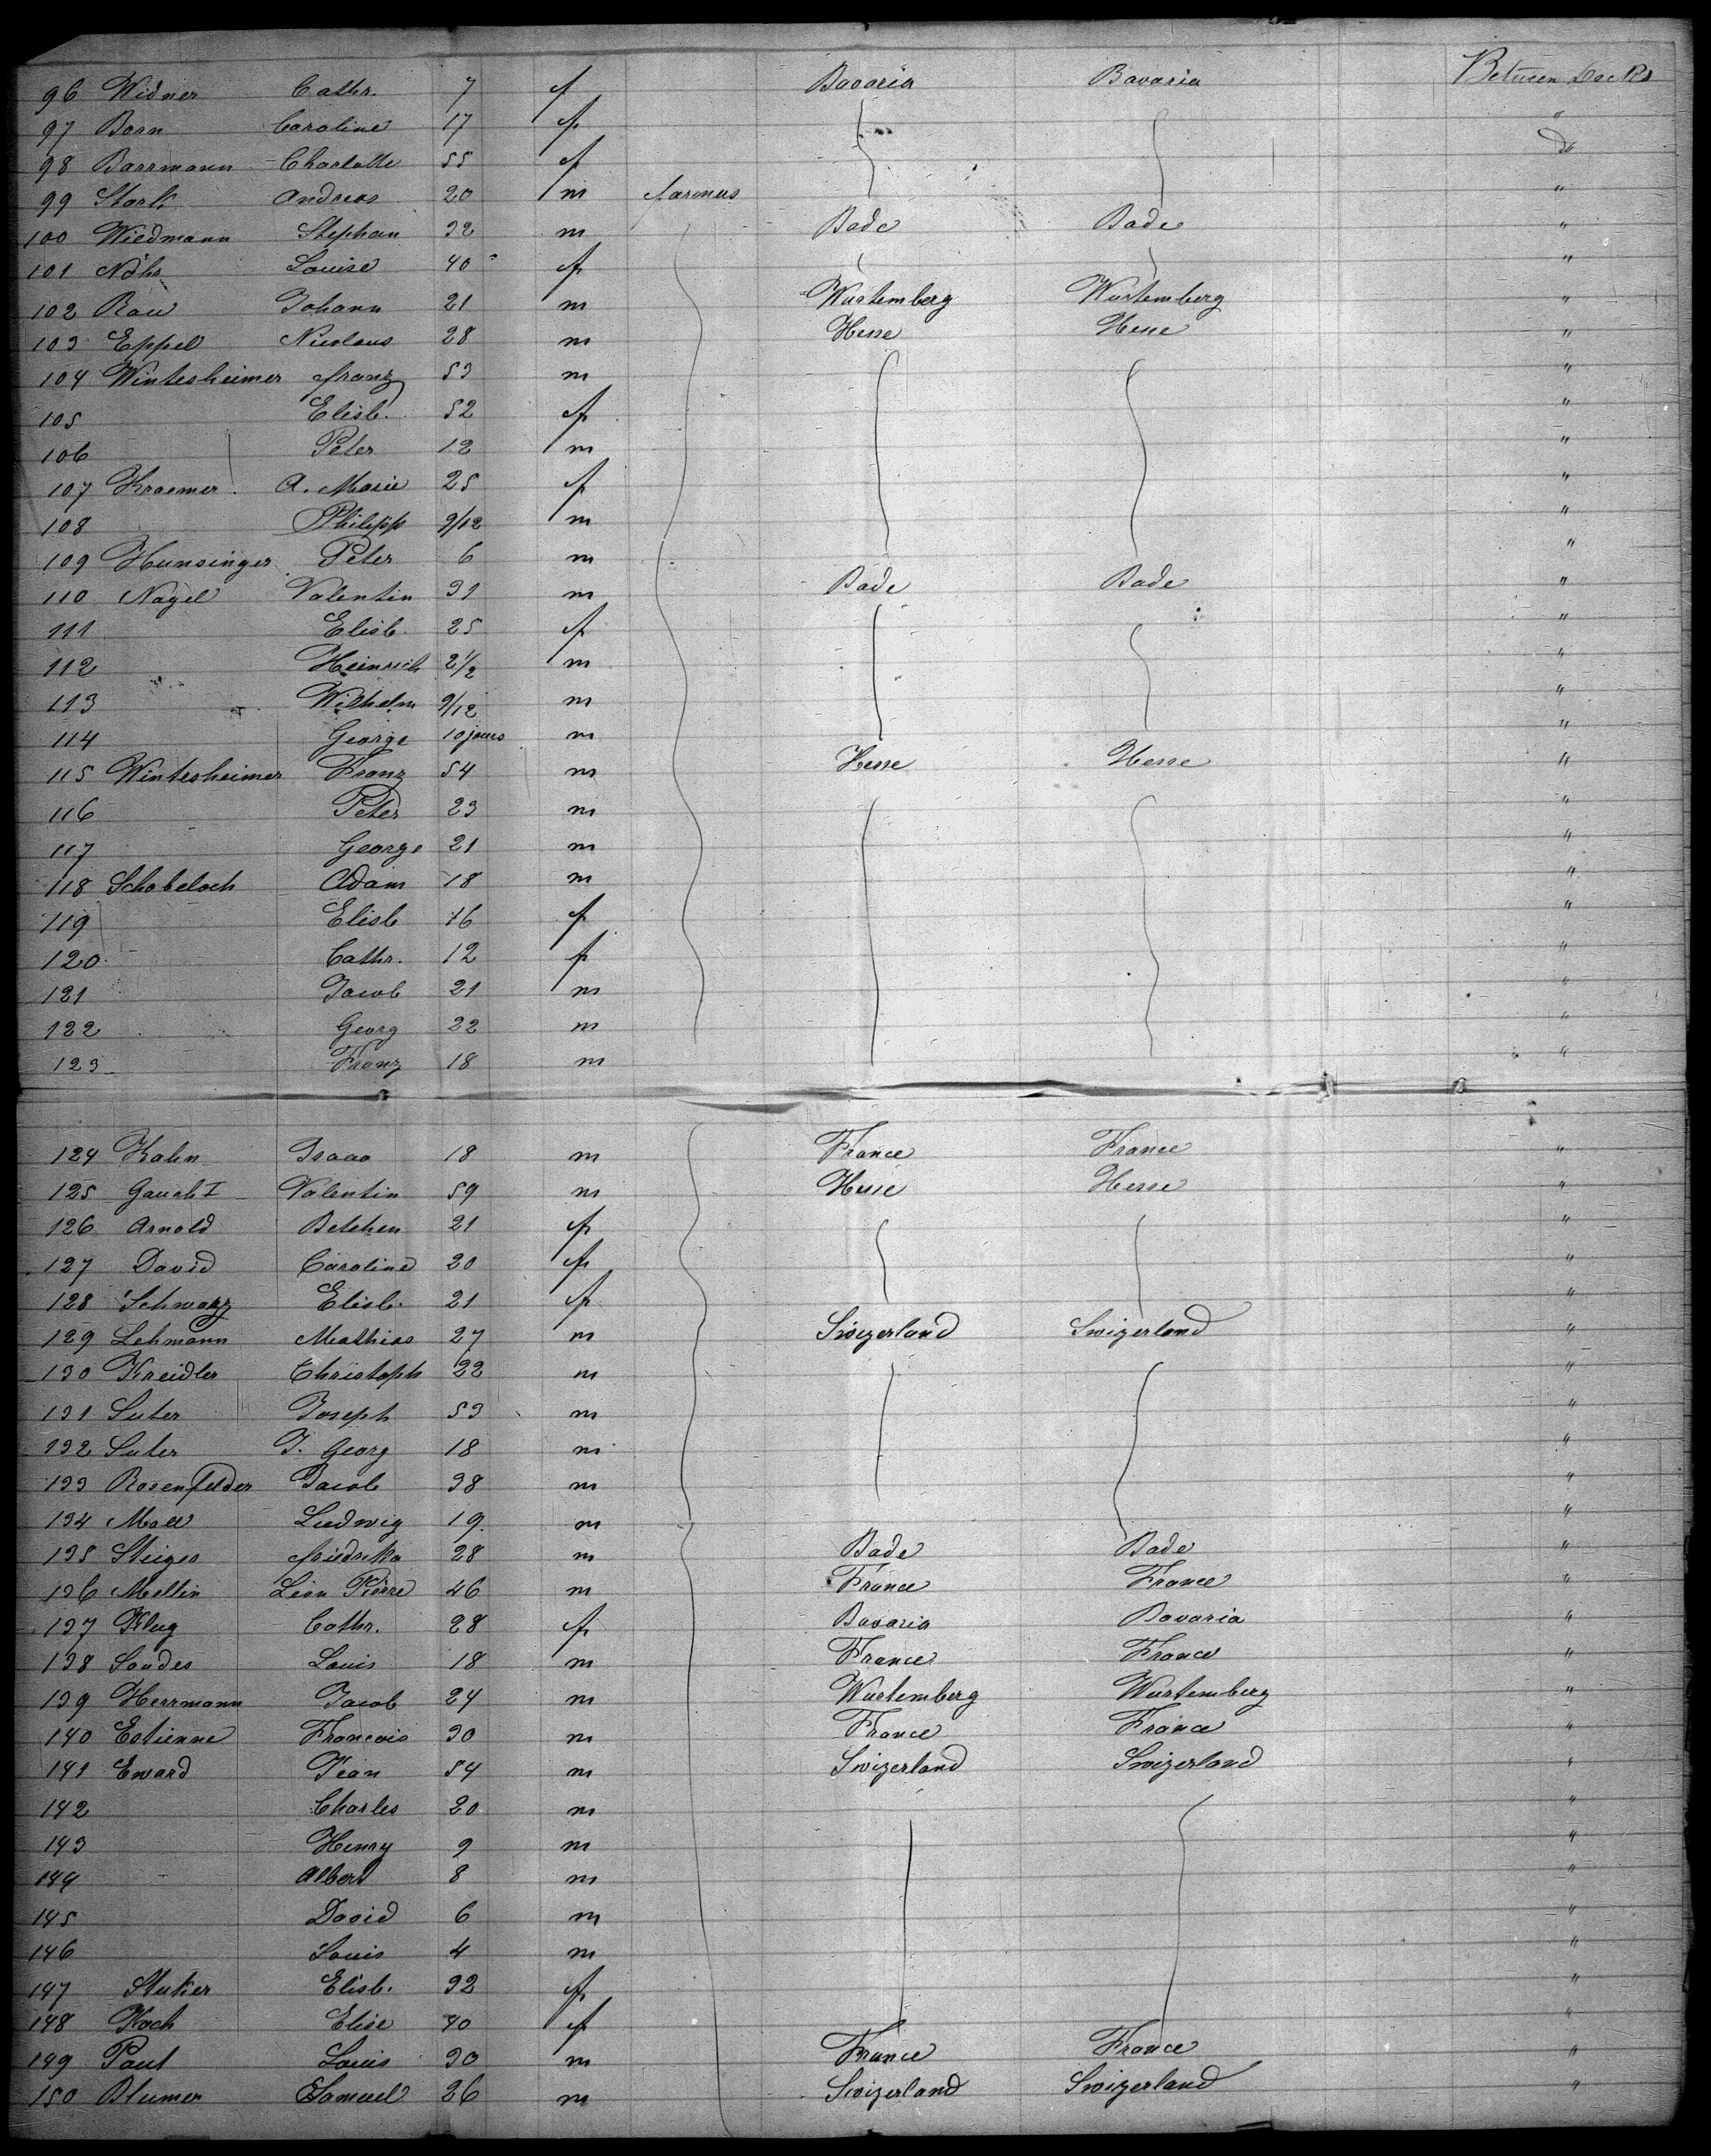 96 Widner Cathr. 7 f Bavaria Bavaria Between Decks
97 Born Caroline 17 f "
98 Barrmann Charlotte 55 f Do
99 Stark Andreas 20 m farmers "
100 Wiedmann Stephan 32 m Bade Bade "
101 Louise 40 f "
102 Rau Johann 21 m Wurtemberg Wurtemberg "
103 Eppel Nicolaus 28 m Hesse Hesse "
104 Wintesheimer franz 53 m "
105 Elisb. 52 f "
106 Peter 12 m "
107 Kraemer A. Marie 25 f "
108 Philipp 9/12 m "
109 Hunsinger Peter 6 m "
110 Nagel Valentin 31 m Bade Bade "
111 Elisb. 25 f "
112 Heinrich 2 1/2 m "
113 Wilhelm 9/12 m "
114 George 10 jours m "
115 Wintesheimer Franz 54 m Hesse Hesse "
116 Peter 23 m "
117 George 21 m "
118 Schobeloch Adam 18 m "
119 Elisb 16 f "
120 Cathr. 12 f "
121 Jacob 21 m "
122 Georg 22 m "
123 Franz 18 m "
124 Kahn Isaac 18 m France France "
125 Gauch I Valentin 59 m Hesse Hesse "
126 Arnold Betchen 21 f "
127 David Caroline 20 f "
128 Schwarz Elisb. 21 f "
129 Lehmann Mathias 27 m Swizerland Swizerland "
130 Kreidler Christoph 22 m "
131 Suter Joseph 53 m "
132 Suter J. Georg 18 m "
133 Rosenfelder Jacob 38 m "
134 Ludwig 19 m "
135 Steiger friedrika 28 m Bade Bade "
136 Mellin Léon Pierre 46 m France France "
137 Klug Cathr. 28 f Bavaria Bavaria "
138 Louis 18 m France France "
139 Herrmann Jacob 24 m Wurtemberg Wurtemberg "
140 Estienne Francois 30 m France France "
141 Eward Jean 54 m Swizerland Swizerland "
142 Charles 20 m "
143 Henry 9 m "
144 Albert 8 m "
145 David 6 m "
146 Louis 4 m "
147 Stuker Elisb. 32 f "
148 Koch Elise 40 f "
149 Paul Louis 30 m France France "
150 Blumer Samuel 26 m Swizerland Swizerland "